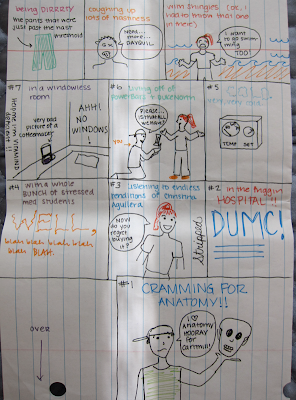 being DIRRRTY
the pants that were
just past the nast
threshold
coughing up
lots of nastiness
Near...
more...
DAYQUIL
with shingles (ok, I
had to throw that one
in there)
I want
to go
swim-
ming
TOO!
#7 in a windowless
room
HYDROGEN VITAMIN D DEFICIENT!!
very bad
picture of a
coffeemaker
AHH!
NO
WINDOWS
!
#6 living off of
PowerBars & Easy Mac
Please...
YOU
#5
COLD
TEMP SET
#4
with a whole
BUNCH of stressed
med students
WELL,
blah blah blah blah
blah. BLAH.
#3 Listening to endless
renditions of Christina
Aguilera
Now do
you
regret
leaving
it?
Stripped
#2 in the friggin
HOSPITAL!!
DUMC!
over
#1
CRAMMING FOR
ANATOMY!!
I ♡
anatomy
HOORAY
for
Cartmill!